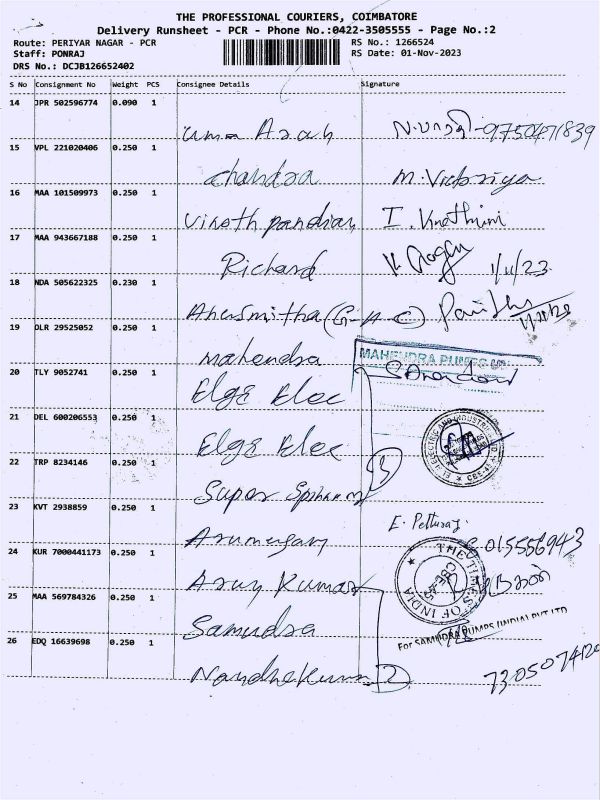 THE PROFESSIONAL COURIERS, COIMBATORE
Delivery Runsheet - PCR - Phone No.:0422-3505555 - Page No.:2
Route: PERIYAR NAGAR - PCR RS No.: 1266524
Staff: PONRAJ RS Date: 01-Nov-2023
DRS No.: DCJB126652402
S No Consignment No Weight PCS Consignee Details Signature
14 JPR 502596774 0.090 1
Uma Arah 9750471839
15 VPL 221020406 0.250 1
Chandra
16 MAA 101509973 0.250 1
Vinoth pandian I.
17 MAA 943667188 0.250 1
Richard 1/11/23
18 NDA 505622325 0.230 1
19 DLR 29525052 0.250 1
Mahendra MAHENDRA PUMPS
20 TLY 9052741 0.250 1
Elge Elec
21 DEL 600206553 0.250 1
Elge Elec
22 TRP 8234146 0.250 1 3
Super
23 KVT 2938859 0.250 1
Arumugam E.
24 KUR 7000441173 0.250 1
Arun Kumar THE TIMES OF INDIA
25 MAA 569784326 0.250 1
Samudra For SAMUDRA PUMPS (INDIA) PVT LTD
26 EDQ 16639698 0.250 1
Nandhakumar 2